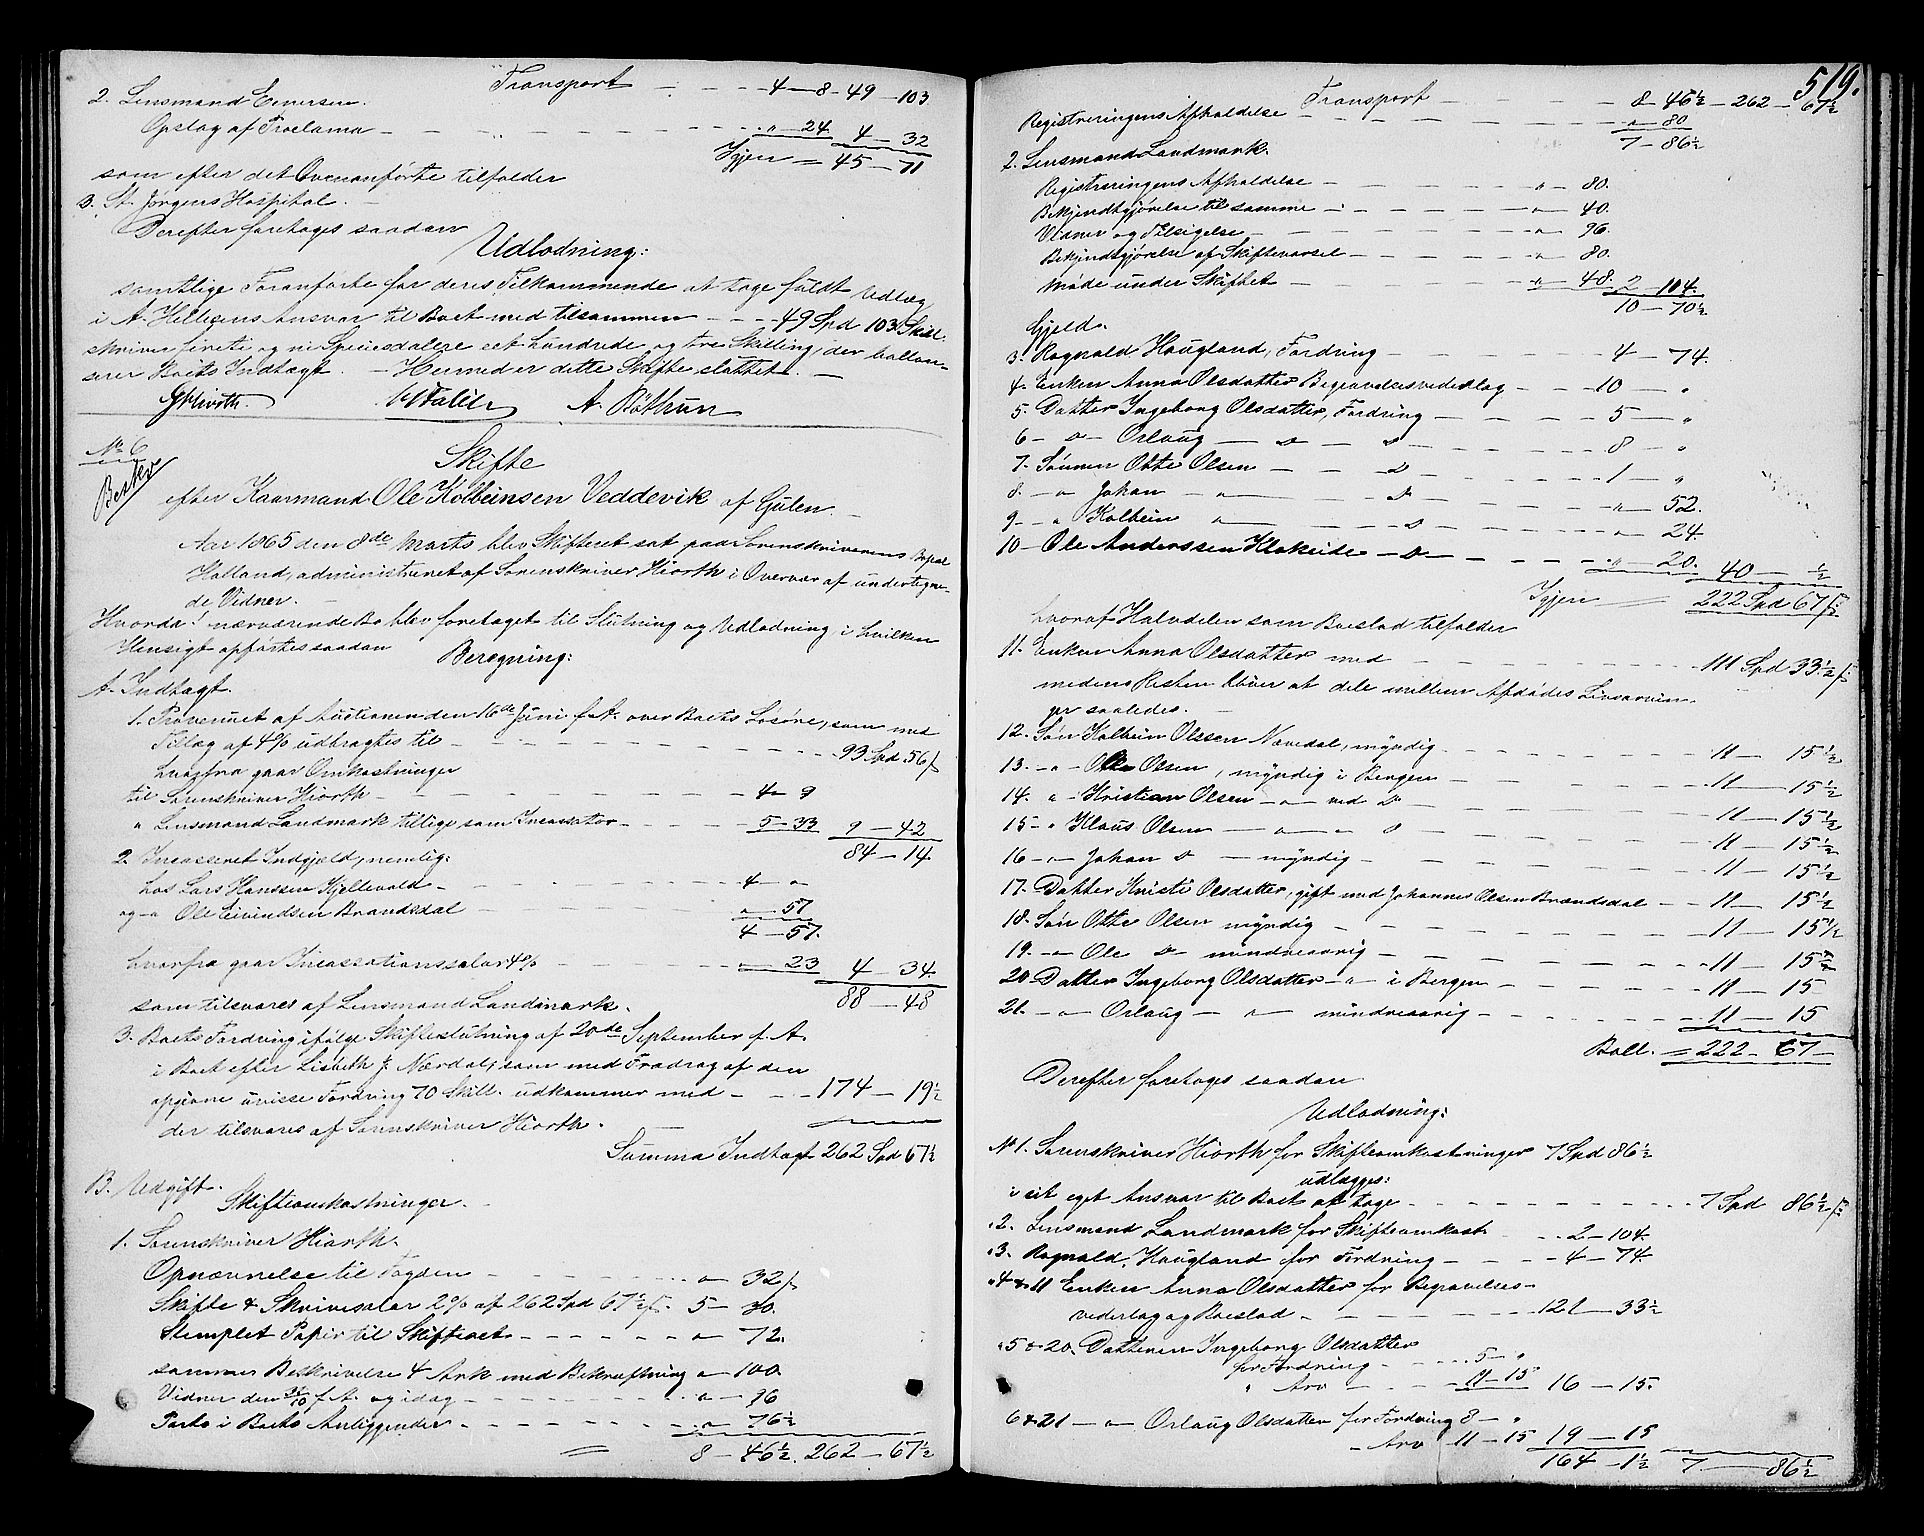 Transport - - - 4-8-49-103
2. Lensmand Eiversen.
Opslag af Proclama - - - " - 24. 4-32
Igjen = 45-71
som efter det Ovenanførte tilfalder
3. St. Jørgens Hospital.
Derefter foretoges saadan
Udlodning:
samtlige Foranførte for deres Tilkommende at tage fuldt Udlæg
i A. Ansvar til Boet med tilsammen - - - 49 Spd 103 Skill.
skriver fireti og ni Speciesdalere eet hundrede og tre Skilling, der ballan-
serer Boets Indtægt. - Hermed er dette Skifte sluttet. -
Hiorth. A. Böthun
No 6
Beskr
Skifte
efter Kaarmand Ole Kolbeinsen Veddevik af Gulen.
Aar 1865 den 8de Marts blev Skifteret sat paa Sorenskriverens Bopæl
Holland, administreret af Sorenskriver Hiorth i Overvær af undertegne-
de Vidner.
Hvorda! nærværende Bo blev foretaget til Slutning og Udlodning, i hvilken
Hensigt opførtes saadan Beregning:
A. Indtægt.
1. Provenuet af Auctionen den 16de Juni f. A. over Boets Løsøre, som med
Tillæg af 4% udbragtes til - - - 93 Spd. 56 s
hvorfra gaar Omkostninger
til Sorenskriver Hiorth - - - 4-9
" Lensmand Landmark tillige som Incassator - - 5-33 9-42
84-14
2. Incasseret Indgjæld, nemlig:
hos Lars Hanssen Kjellevold - - - 4-"
og " Ole Eivindsen Brandsdal - - - "-57
4-57.
hvorfra gaar Incassationssalar 4% - - - "-23 4-34.
88-48
som tilsvares af Lensmand Landmark.
3. Boets Fordring ifølge Skifteslutning af 20de September f. A.
i Boet efter Lisbeth J. Nærdal, som med Fradrag af den
opgivne uvisse Fordring 70 Skill. udkommer med - - - 174-19½
der tilsvares af Sorenskriver Hiorth.
Summa Indtægt 262 Spd 67½
B. Udgift.
Skifteomkostninger.
1. Sorenskriver Hiorth.
Opnævnelse til Fogden - - - "-32 s
Skifte & Skriversalar 2% af 262 Spd 67½ s. 5-30.
Stemplet Papir til Skifteact - - - "-72.
sammes Beskrivelse 4 Ark med Bekræftning "-100
Vidner den f. A. og idag - - - "-96
Porto i Boets Anliggender - - - "-76½
= 8-46½. 262-67½
519.
Transport - - - 8-46½-262-67½
Registreringens Afholdelse - - - "-80
7-86½
2. Lensmand Landmark.
Registreringens Afholdelse - - - "-80.
Bekjendtgjørelse til samme - - - "-40.
Vidner og Tilsigelse - - - "-96.
Bekjendtgjørelse af Skiftevarsel - - - "-80.
Møde under Skiftet - - - "-48. 2-104.
10-70½
Gjeld.
3. Ragnald Haugland, Fordring - - - 4-74.
4. Enken Anna Olsdatter Begravelsesvederlag - - - 10-"
5. Datter Ingeborg Olsdatter, Fordring - - - 5-"
6- do- Orlaug - do - do 8-"
7. Sønnen Otte Olsen - - do - 1-"
8. - " Johan - " - do - "-52.
9- - " Kolbein " - - do - "-24.
10- Ole Anderssen Klakeide - do - - - "-20. 40- ½
Igjen = 222 Spd 67 s
hvoraf Halvdelen som Boeslod tilfalder
11. Enken Anna Olsdatter med - - - 111 Spd 33½ s
medens Resten bliver at dele mellem Afdødes Livsarvin-
ger saaledes.
12. Søn Kolbein Olssen Nævedal, myndig - - - 11-15½
13. - " - Olsen, myndig i Bergen - - - 11-15½
14. " - Kristian Olsen - " - ved do - - - 11-15½
15- " Klaus Olsen - " - " do - - - 11-15½
16- " - Johan do - myndig - - - 11-15½
17. Datter Kristi Olsdatter, gift med Johannes Olsen Brandsdal - - 11-15½
18. Søn Otte Olsen myndig - - - 11-15½
19. - " - Ole do mindreaarig - - - 11-15½
20. Datter Ingeborg Olsdatter - " - i Bergen - - - 11-15
21. - " - Orlaug - " - mindreaarig - - - 11-15
Ball. = 222-67-
Derefter foretoges saadan
Udlodning:
No 1. Sorenskriver Hiorth for Skifteomkostninger 7 Spd 86½
udlægges:
i sit eget Ansvar til Boet at tage - - - 7 Spd 86½ s
"2. Lensmand Landmark for Skifteomkost. - - 2-104.
"3. Ragnald Haugland for Fordring - - - 4-74.
"4 & 11 Enken Anna Olsdatter for Begravelses-
vederlag og Boeslod - - - 121-33½
"5 & 20. Datteren Ingeborg Olsdatter
for Fordring - - - 5-"
" Arv - - - 11-15 16-15.
6 & 21 - " - Orlaug Olsdatter for Fordring 8-"
- Arv 11-15 19-15
164-1½ 7-86½